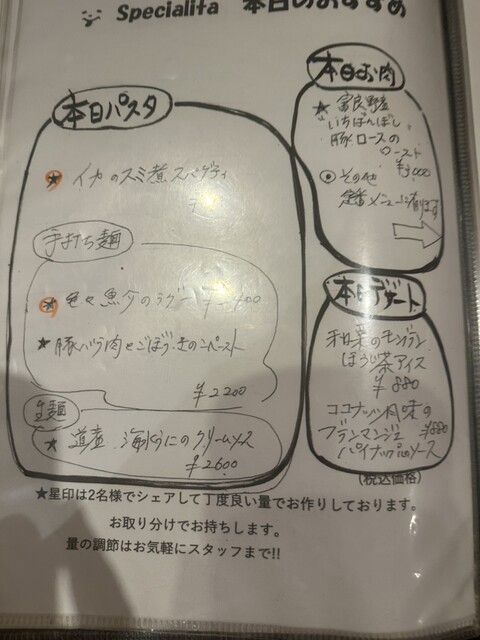 Specialita 本日のおすすめ
本日パスタ
★ イカのスミ煮スパゲティ
手打ち麺
★ 色々魚介のラグー
★ 豚バラ肉とごぼう、きのこペースト
¥2200
生麺
★ 道産 海水うにのクリームソース
¥2600
本日お肉
★ 富良野産
いちばんぼし、
豚ロースの
ロースト
その他
定番メニューに有ります
本日デザート
和栗のモンブラン
ほうじ茶アイス
¥880
ココナッツ風味の
ブランマンジェ ¥880
パイナップルソース
(税込価格)
★星印は2名様でシェアして丁度良い量でお作りしております。
お取り分けでお持ちします。
量の調節はお気軽にスタッフまで!!